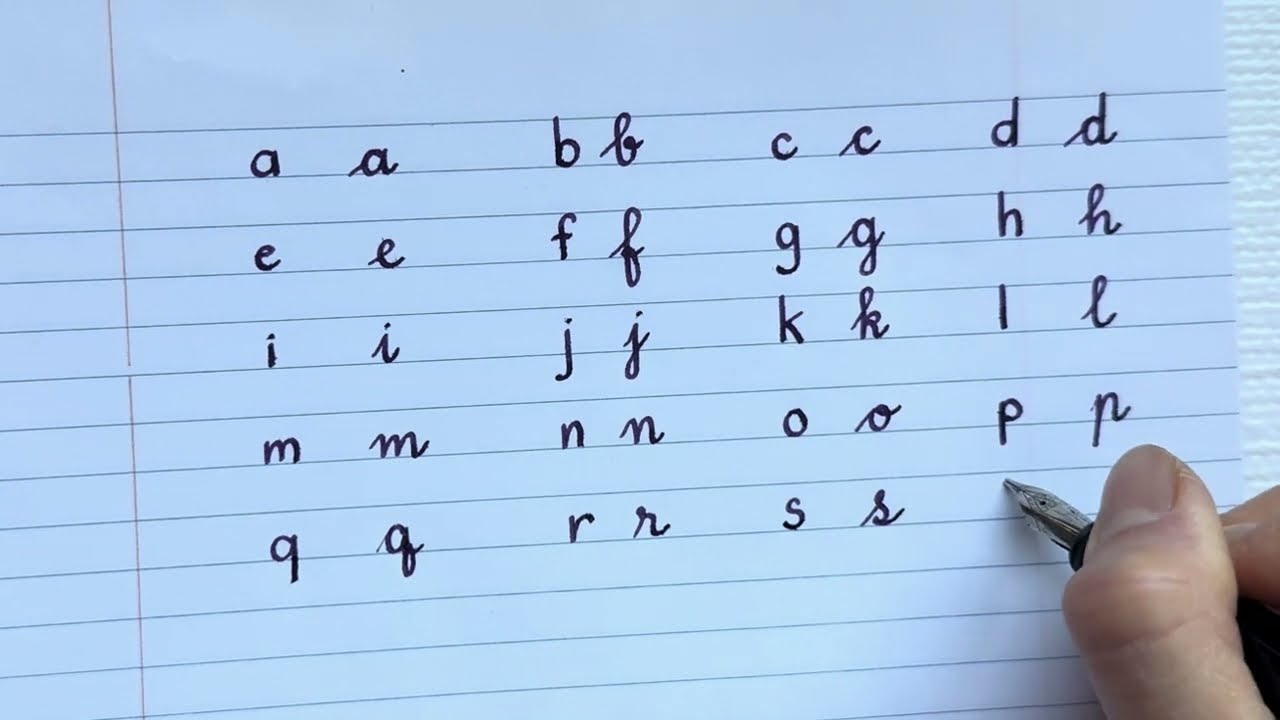 a a b b c c d d
e e f f g g h h
i i j j k k l l
m m n n o o p p
q q r r s s